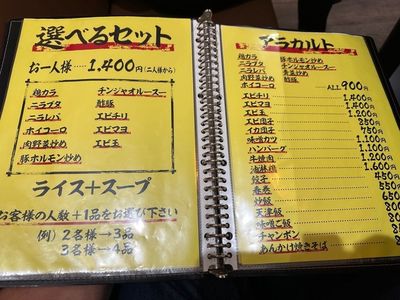 選べるセット
お一人様‥‥1,400円(二人様から)
鶏カラ チンジャオルースー
ニラブタ 酢豚
ニラレバ エビチリ
ホイコーロ エビマヨ
肉野菜炒め エビ玉
豚ホルモン炒め
ライス+スープ
お客様の人数+1品をお選び下さい
(例) 2名様→3品
3名様→4品
アラカルト
鶏カラ 豚ホルモン炒め
ニラブタ チンジャオルースー
ニラレバ 肉野菜炒め
ホイコーロ 酢豚
ALL 900円
エビチリ 1,400
エビマヨ 1,400
エビ玉 1,200
エビ団子 350
イカ団子 750
味噌カツ 1,100
ハンバーグ 1,100
牛焼肉 1,200
油淋鶏 1,600
餃子 450
春巻 550
炒飯 650
天津飯
味噌ご飯
チャンポン
あんかけ焼きそば